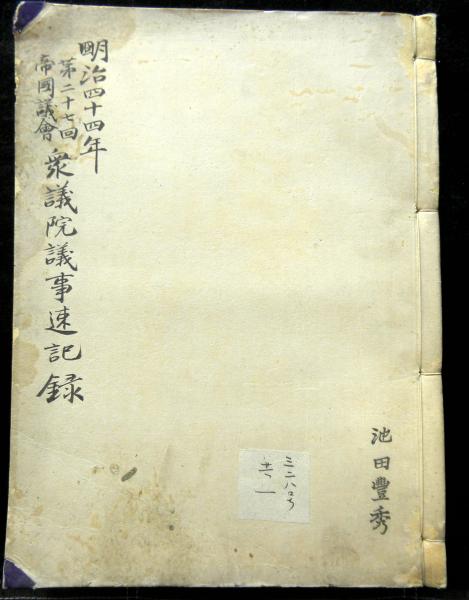 明治四十四年
第二十七回
帝國議會
衆議院議事速記録
池田豐秀
三二八
一